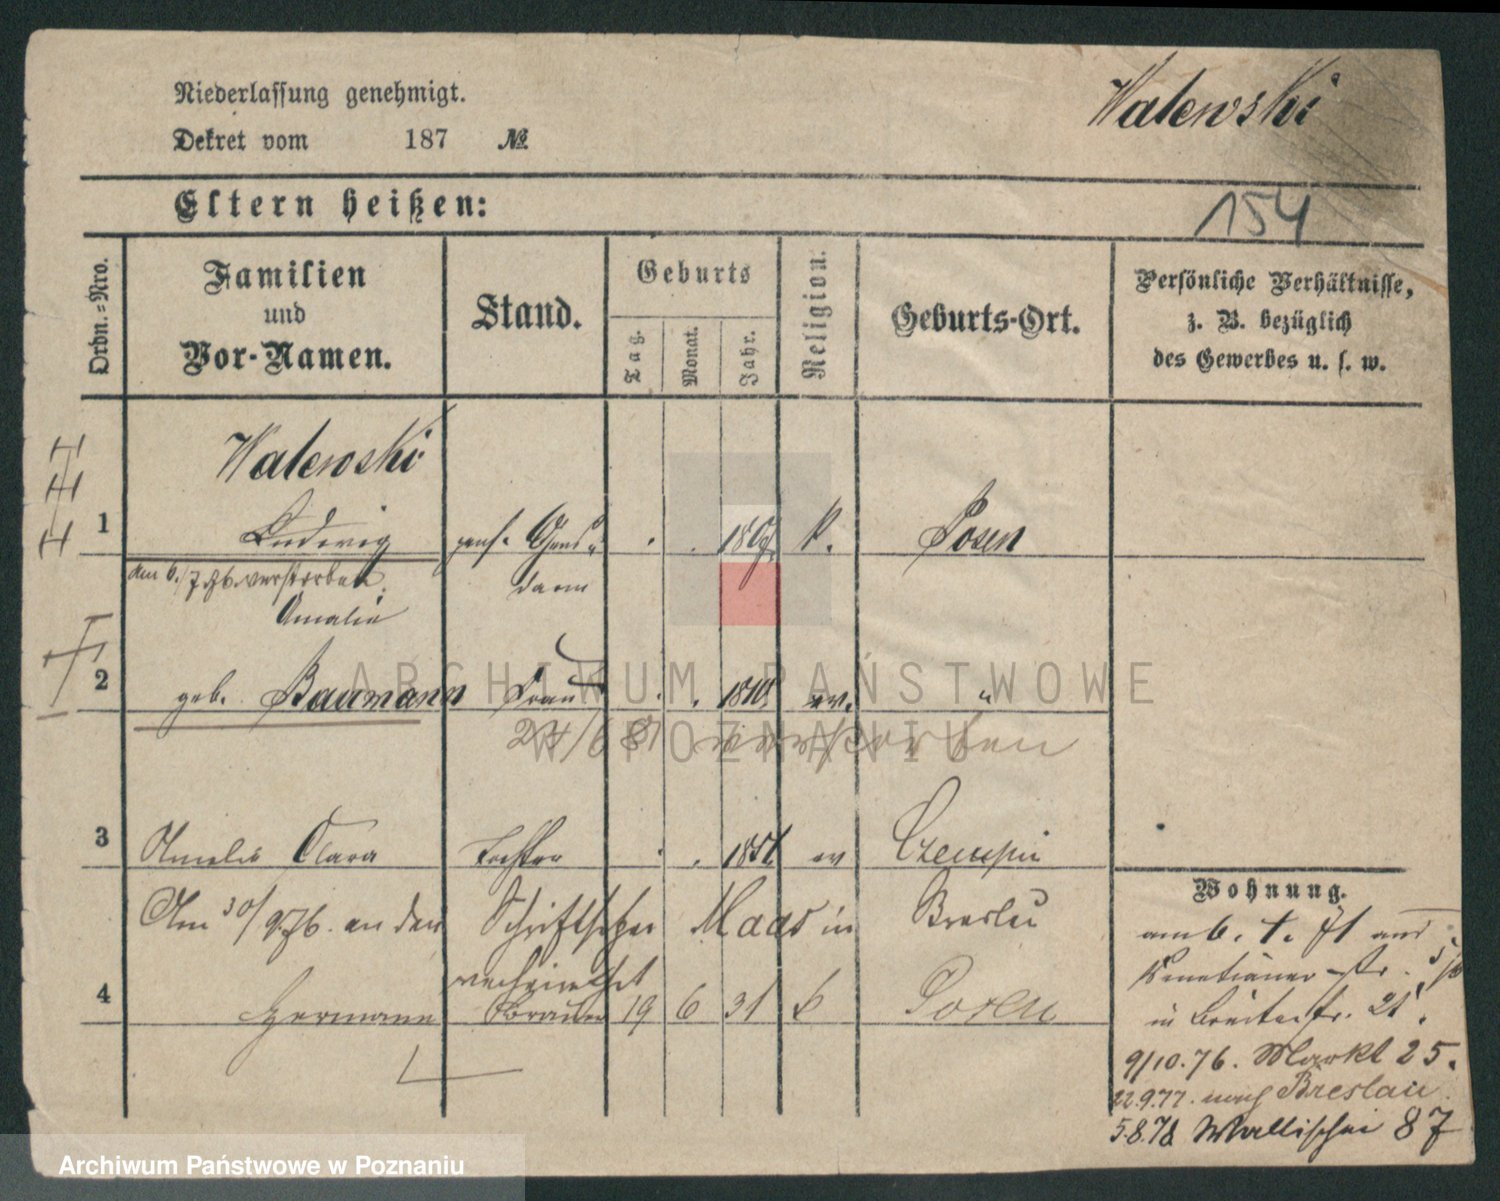 Niederlassung genehmigt.
Walewski
Dekret vom 187 №
Eltern heißen:
154
Ordn.-Nro.
Familien
und
Vor-Namen.
Stand.
Geburts
Tag.
Monat.
Jahr.
Religion.
Geburts-Ort.
Persönliche Verhältnisse,
z. B. bezüglich
des Gewerbes u. s. w.
Walewski
1 Ludwig pens. Gens- K. Posen
am 6./7.76. verstorben darm
Amalie
2 geb. Baumann Frau 1810 ev. "
24/6 81 verstorben
3 Amalie Clara Tochter 1851 ev Czempin
Wohnung.
Am 30/9.76. an den Schriftsetzer Maas in Breslau
verheirathet
4 Hermann 19 6 31 k Posen
am 6. 4. 71 aus
Venetianer Str.
in Breitestr. 21.
9/10.76. Markt 25.
22.9.77. nach Breslau
5.8.78 Wallischei 87
ARCHIWUM PAŃSTWOWE
W POZNANIU
Archiwum Państwowe w Poznaniu